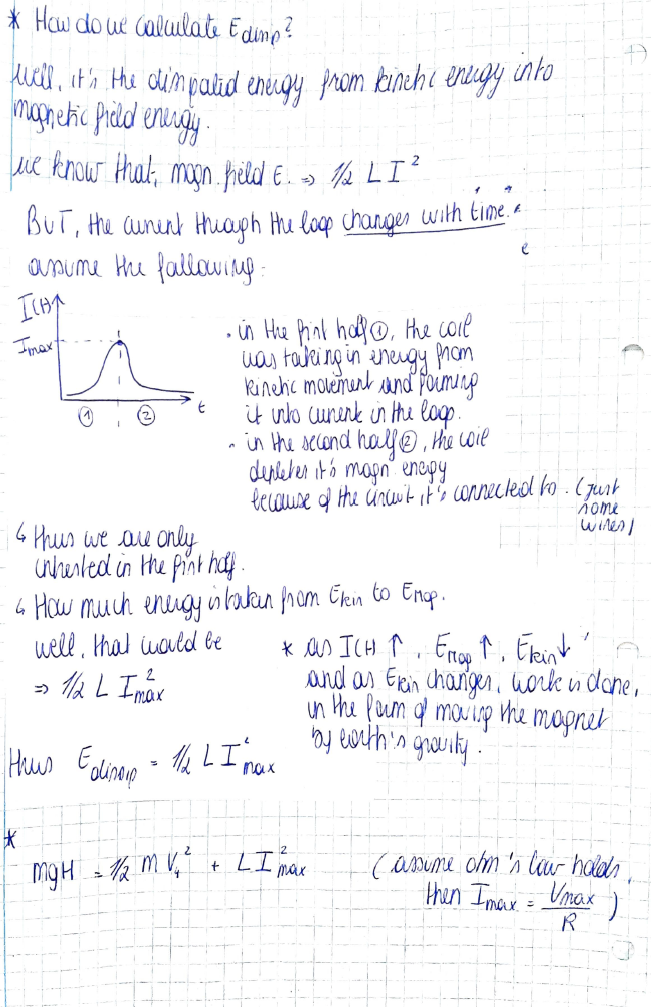 * How do we calculate Edissip?
well, it's the dissipated energy from kinetic energy into
magnetic field energy.
we know that, magn. field E. => 1/2 L I²
BUT, the current through the loop changes with time.
assume the following:
I(t)
Imax
t
① ②
- in the first half ①, the coil
was taking in energy from
kinetic movement and forming
it into current in the loop.
- in the second half ②, the coil
depletes it's magn. energy
because of the circuit it's connected to. (just
some
wires)
↳ thus we are only
interested in the first half.
↳ How much energy is taken from Ekin to Emag.
well, that would be
=> 1/2 L I²max
* as I(t) ↑, Emag ↑, Ekin ↓
and as Ekin changes, work is done,
in the form of moving the magnet
by earth's gravity.
thus Edissip = 1/2 L I²max
*
mgH = 1/2 m V₄² + L I²max (assume ohm's law holds,
then Imax = Vmax/R)